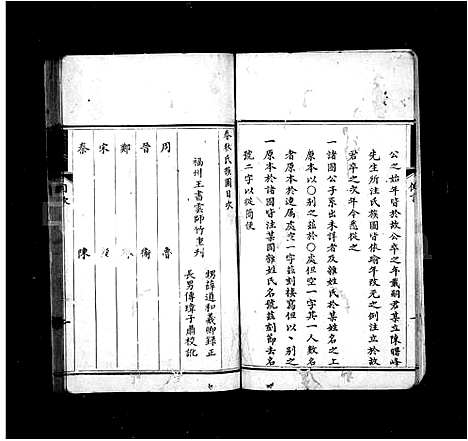 公之始年皆於故公卒之年戴嗣君某立陳曙峰
先生所注氏族圖皆依踰年改元之例注於故
君卒之次年今悉從之
一諸國公子系出未詳者及雜姓氏於某姓名之上
原本以〇別之兹於〇處但空一字其一人數名
者原本於連屬處空一字兹刻接寫但以、別之
一原本於諸國皆注某國雜姓氏名號兹刻節去名
號二字以從簡便
春秋氏族圖目次
福州王書雲師竹重刊
甥薛適和羲卿錄正
長男傳璋子肅校訛
周 魯
晉 衛
鄭
宋
秦 陳